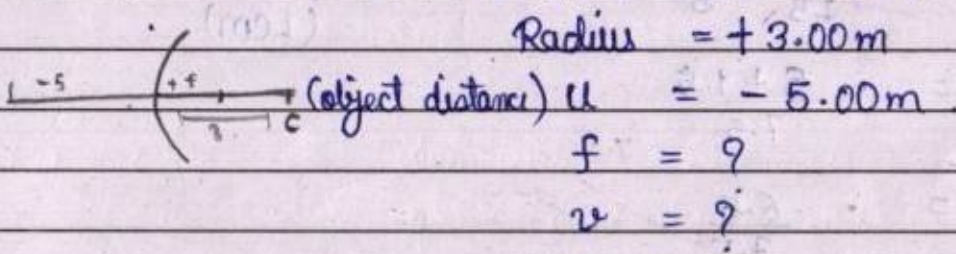 Radius = + 3.00m
-5 + f (object distance) u = - 5.00m
3 C
f = ?
v = ?